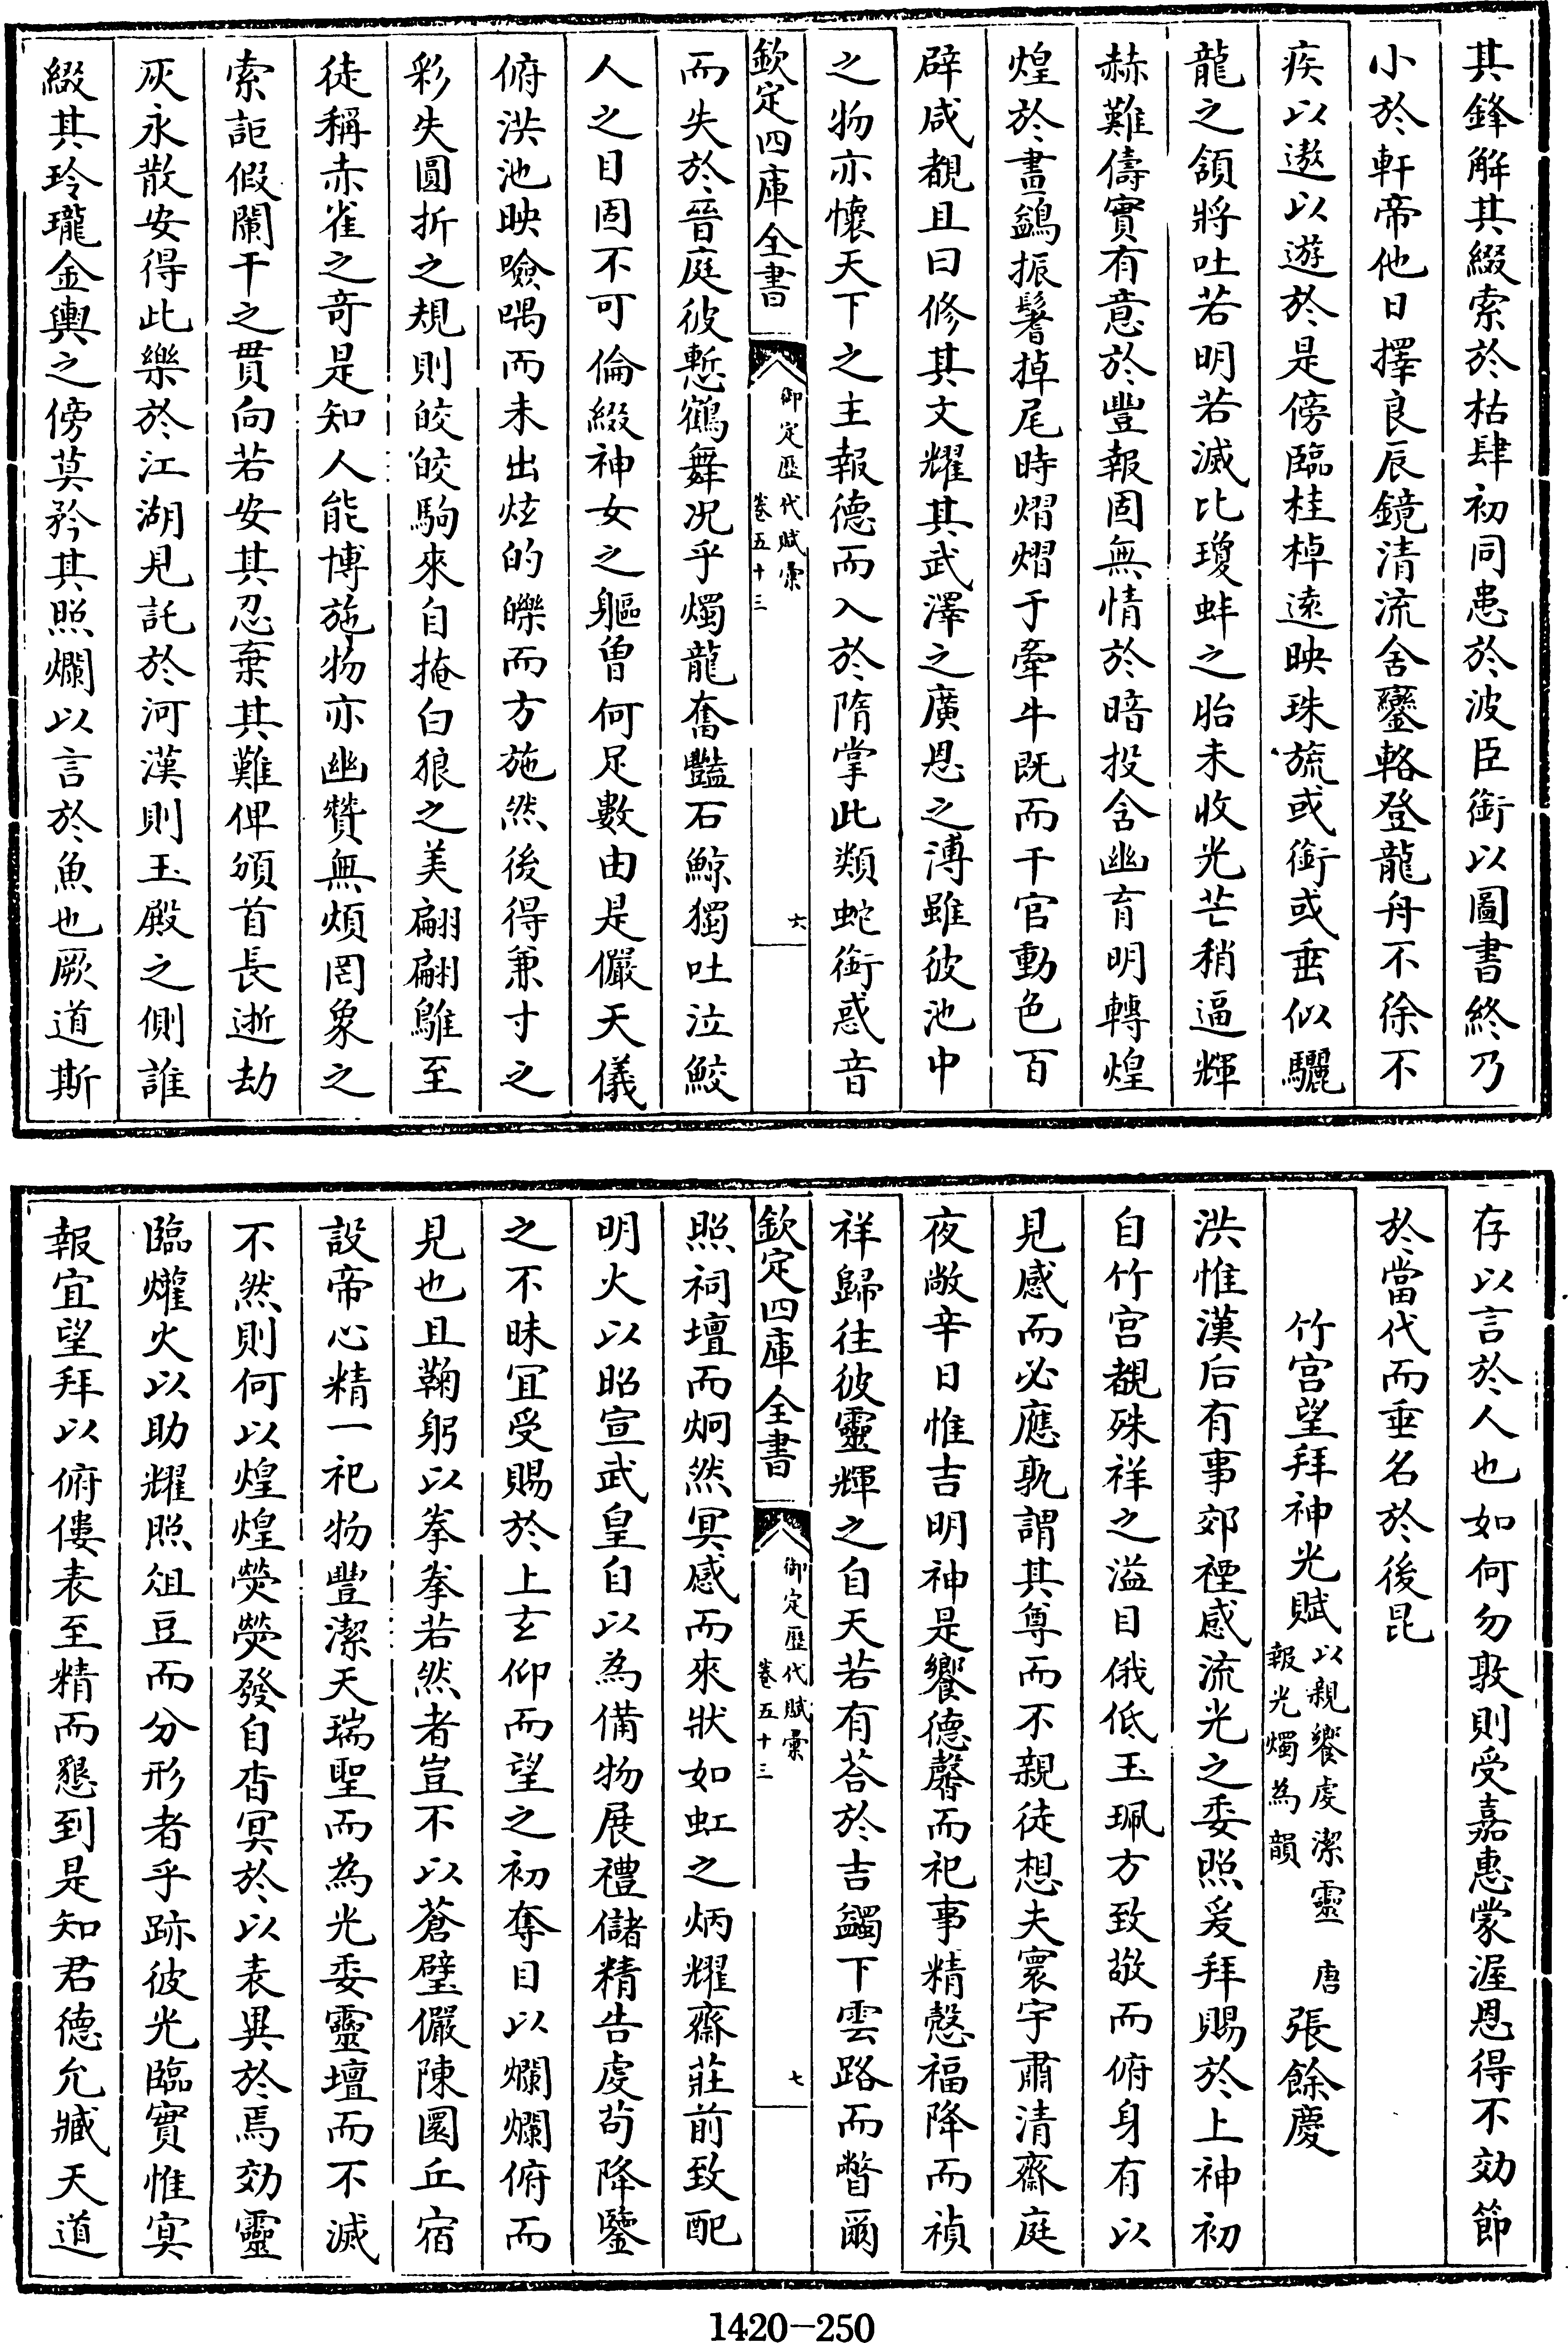 其鋒解其綴索於枯肆初同患於波臣銜以圖書終乃
小於軒帝他日擇良辰鏡清流舍鑾輅登龍舟不徐不
疾以遨以遊於是傍臨桂棹遠映珠旒或銜或垂似驪
龍之頷將吐若明若滅比瓊蚌之胎未收光芒稍逼輝
赫難儔實有意於豐報固無情於暗投含幽育明轉煌
煌於畫鷁振鬐掉尾時熠熠于牽牛既而千官動色百
辟咸覩且曰修其文耀其武澤之廣恩之溥雖彼池中
之物亦懷天下之主報德而入於隋掌此類蛇銜惑音
欽定四庫全書
御定歷代賦彙
卷五十三
六
而失於晉庭彼慙鶴舞况乎燭龍奮豔石鯨獨吐泣鮫
人之目固不可倫綴神女之軀曽何足數由是儼天儀
俯洪池映噞喁而未出炫的皪而方施然後得兼寸之
彩失圓折之規則皎皎駒來自掩白狼之美翩翩鵻至
徒稱赤雀之奇是知人能博施物亦幽贊無煩罔象之
索詎假闌干之貫向若安其忍棄其難俾頒首長逝劫
灰永散安得此樂於江湖見託於河漢則玉殿之側誰
綴其玲瓏金輿之傍莫矜其照爛以言於魚也厥道斯
存以言於人也如何勿敦則受嘉惠蒙渥恩得不効節
於當代而垂名於後昆
竹宮望拜神光賦
以親饗虔潔靈
報光燭為韻
唐
張餘慶
洪惟漢后有事郊禋感流光之委照爰拜賜於上神初
自竹宮覩殊祥之溢目俄低玉珮方致敬而俯身有以
見感而必應孰謂其尊而不親徒想夫寰宇肅清齋庭
夜敞辛日惟吉明神是饗德馨而祀事精慤福降而禎
祥歸往彼靈輝之自天若有荅於吉蠲下雲路而瞥爾
欽定四庫全書
御定歷代賦彙
卷五十三
七
照祠壇而炯然冥感而來狀如虹之炳耀齋莊前致配
明火以昭宣武皇自以為備物展禮儲精告虔苟降鑒
之不昧宜受賜於上玄仰而望之初奪目以爛爛俯而
見也且鞠躬以拳拳若然者豈不以蒼璧儼陳圜丘宿
設帝心精一祀物豐潔天瑞聖而為光委靈壇而不滅
不然則何以煌煌熒熒發自杳冥於以表異於焉効靈
臨爟火以助耀照俎豆而分形者乎跡彼光臨實惟冥
報宜望拜以俯僂表至精而懇到是知君德允臧天道
1420-250